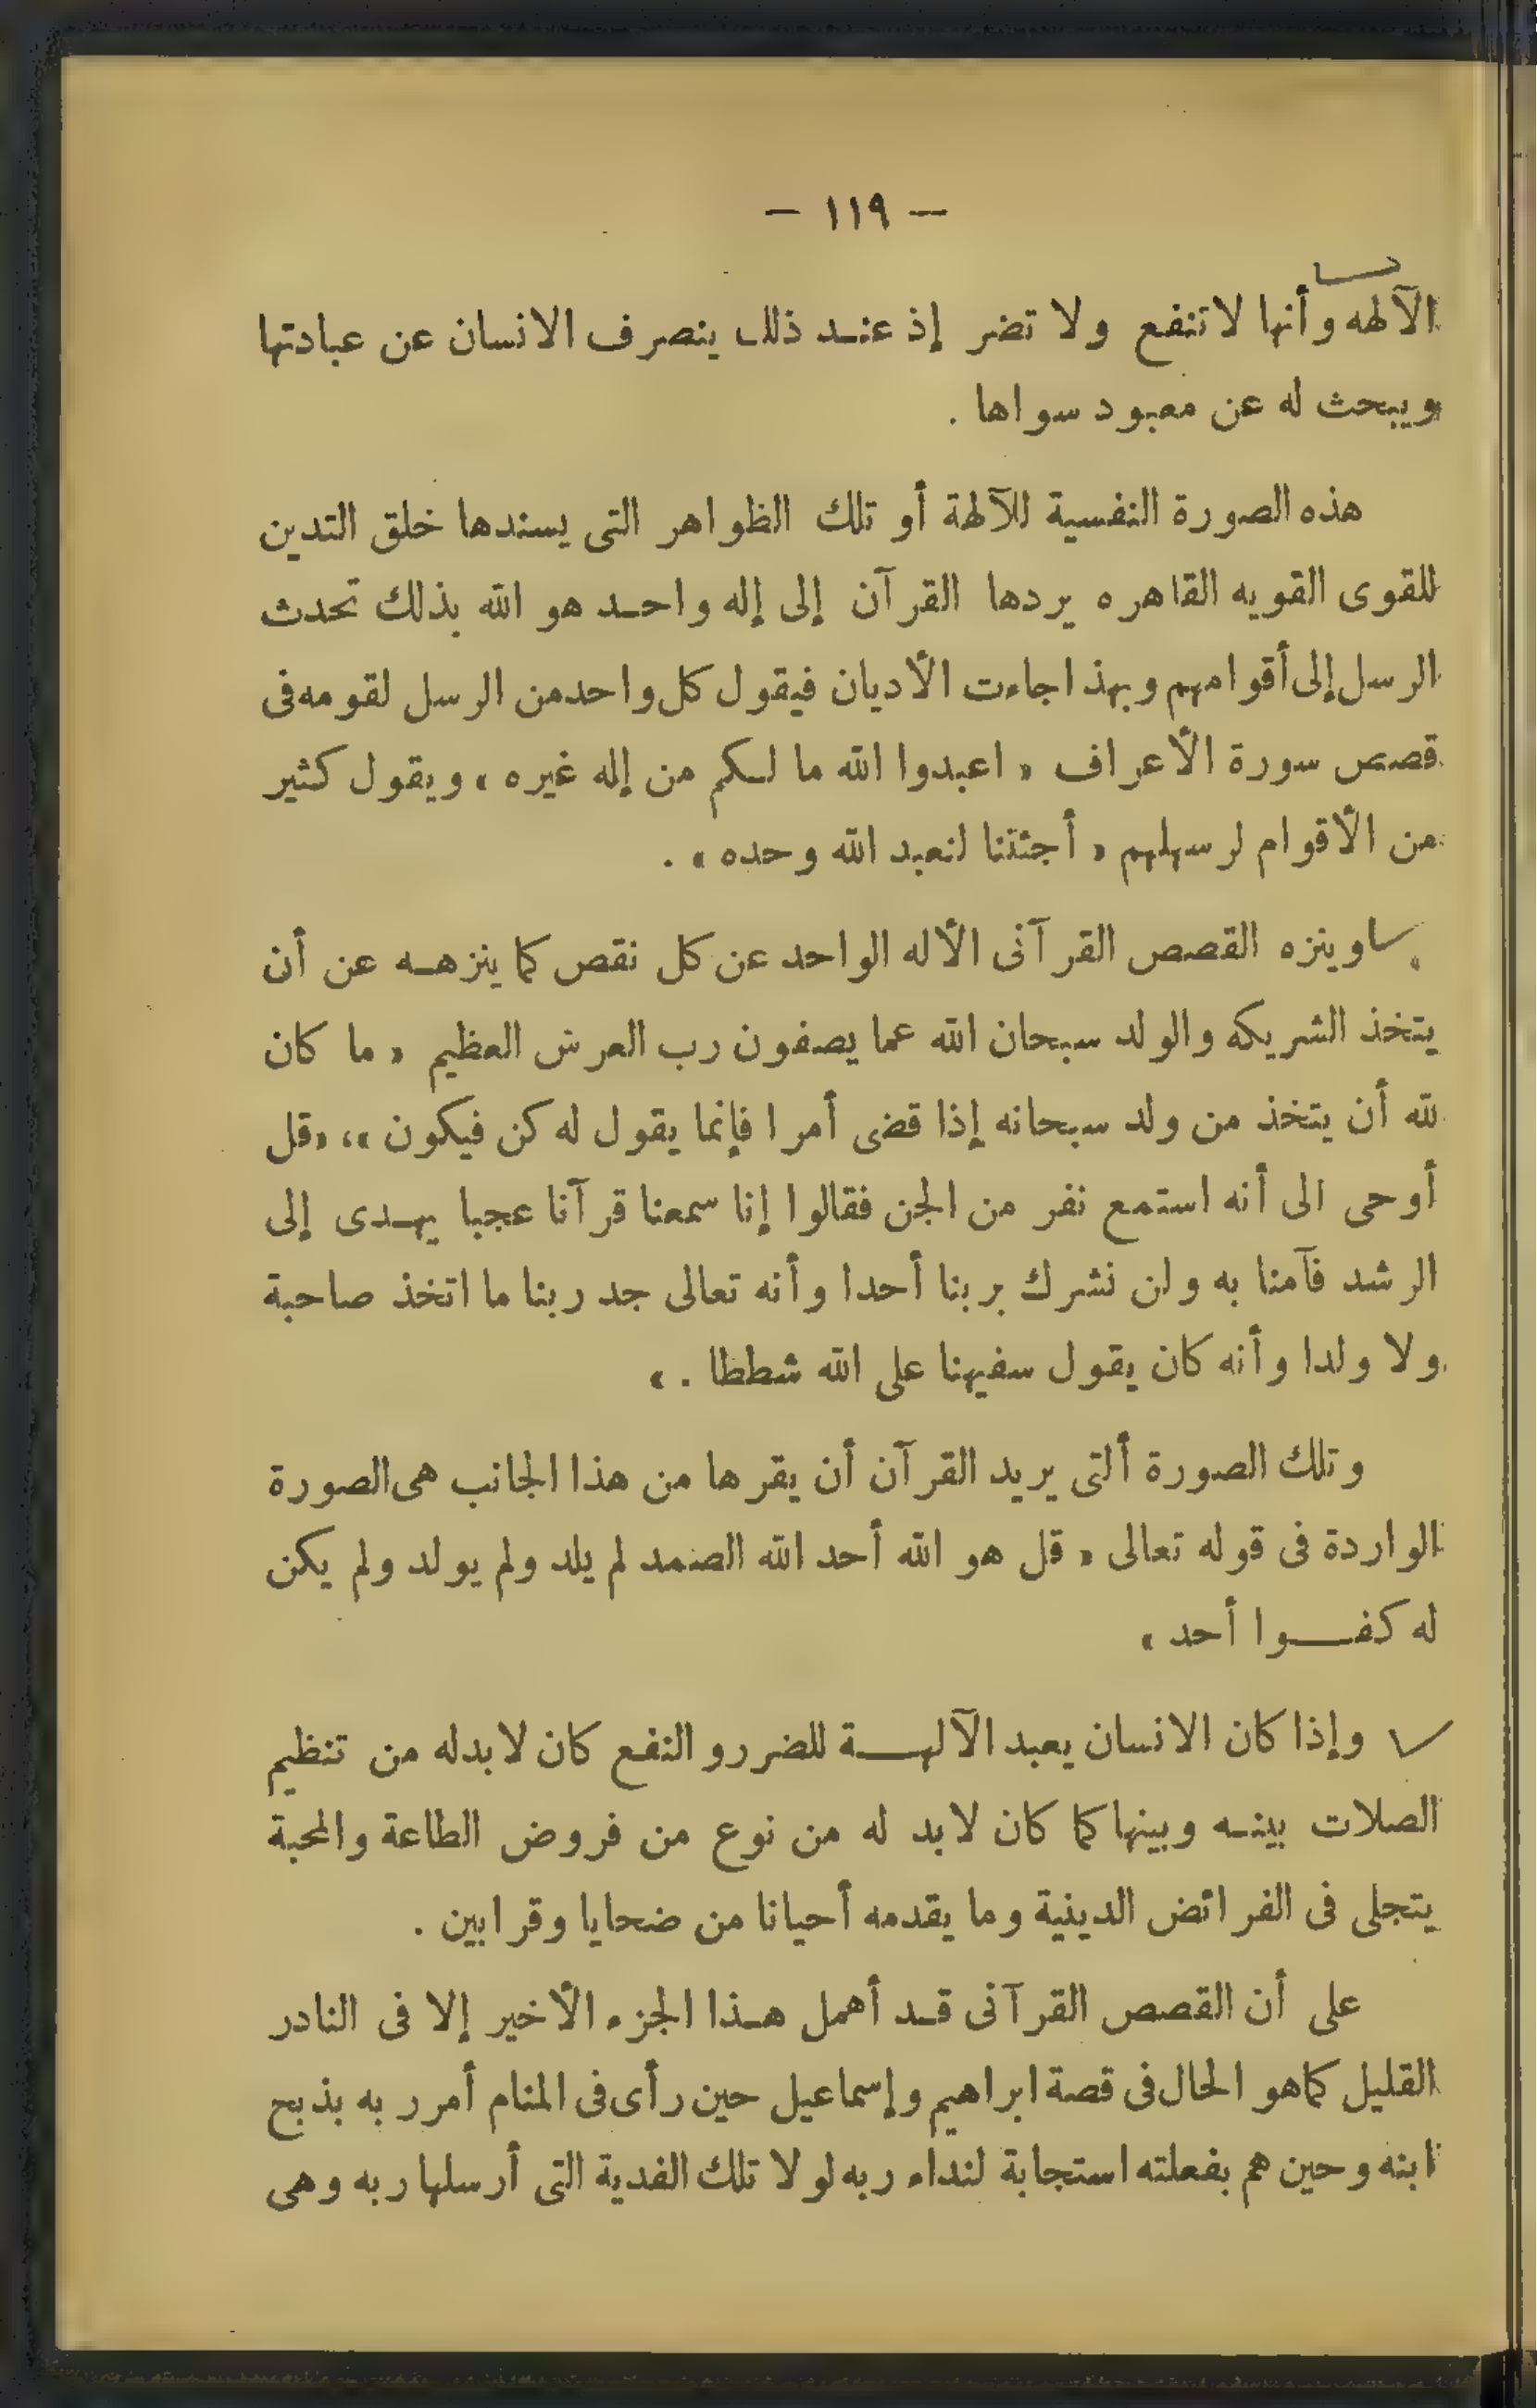 — ١١٩ —
الآلهه وأنها لا تنفع ولا تضر إذ عند ذلك ينصرف الانسان عن عبادتها
ويبحث له عن معبود سواها .
هذه الصورة النفسية للآلهة أو تلك الظواهر التى يسندها خلق التدين
للقوى القويه القاهره يردها القرآن إلى إله واحد هو الله بذلك تحدث
الرسل إلى أقوامهم وبهذا جاءت الأديان فيقول كل واحد من الرسل لقومه فى
قصص سورة الأعراف « اعبدوا الله ما لكم من إله غيره » ويقول كثير
من الأقوام لرسهلهم « أجئتنا لنعبد الله وحده » .
وينزه القصص القرآنى الأله الواحد عن كل نقص كما ينزهه عن أن
يتخذ الشريكه والولد سبحان الله عما يصفون رب العرش العظيم « ما كان
لله أن يتخذ من ولد سبحانه إذا قضى أمرا فإنما يقول له كن فيكون »، «قل
أوحى الى أنه استمع نفر من الجن فقالوا إنا سمعنا قرآنا عجبا يهدى إلى
الرشد فآمنا به ولن نشرك بربنا أحدا وأنه تعالى جد ربنا ما اتخذ صاحبة
ولا ولدا وأنه كان يقول سفيهنا على الله شططا . »
وتلك الصورة ألتى يريد القرآن أن يقرها من هذا الجانب هى الصورة
الواردة فى قوله تعالى « قل هو الله أحد الله الصمد لم يلد ولم يولد ولم يكن
له كفوا أحد »
وإذا كان الانسان يعبد الآلهة للضرر والنفع كان لا بد له من تنظيم
الصلات بينه وبينها كما كان لا بد له من نوع من فروض الطاعة والمحبة
يتجلى فى الفرائض الدينية وما يقدمه أحيانا من ضحايا وقرابين .
على أن القصص القرآنى قد أهمل هذا الجزء الأخير إلا فى النادر
القليل كما هو الحال فى قصة ابراهيم وإسماعيل حين رأى فى المنام أمر ربه بذبح
ابنه وحين هم بفعلته استجابة لنداء ربه لولا تلك الفدية التى أرسلها ربه وهى